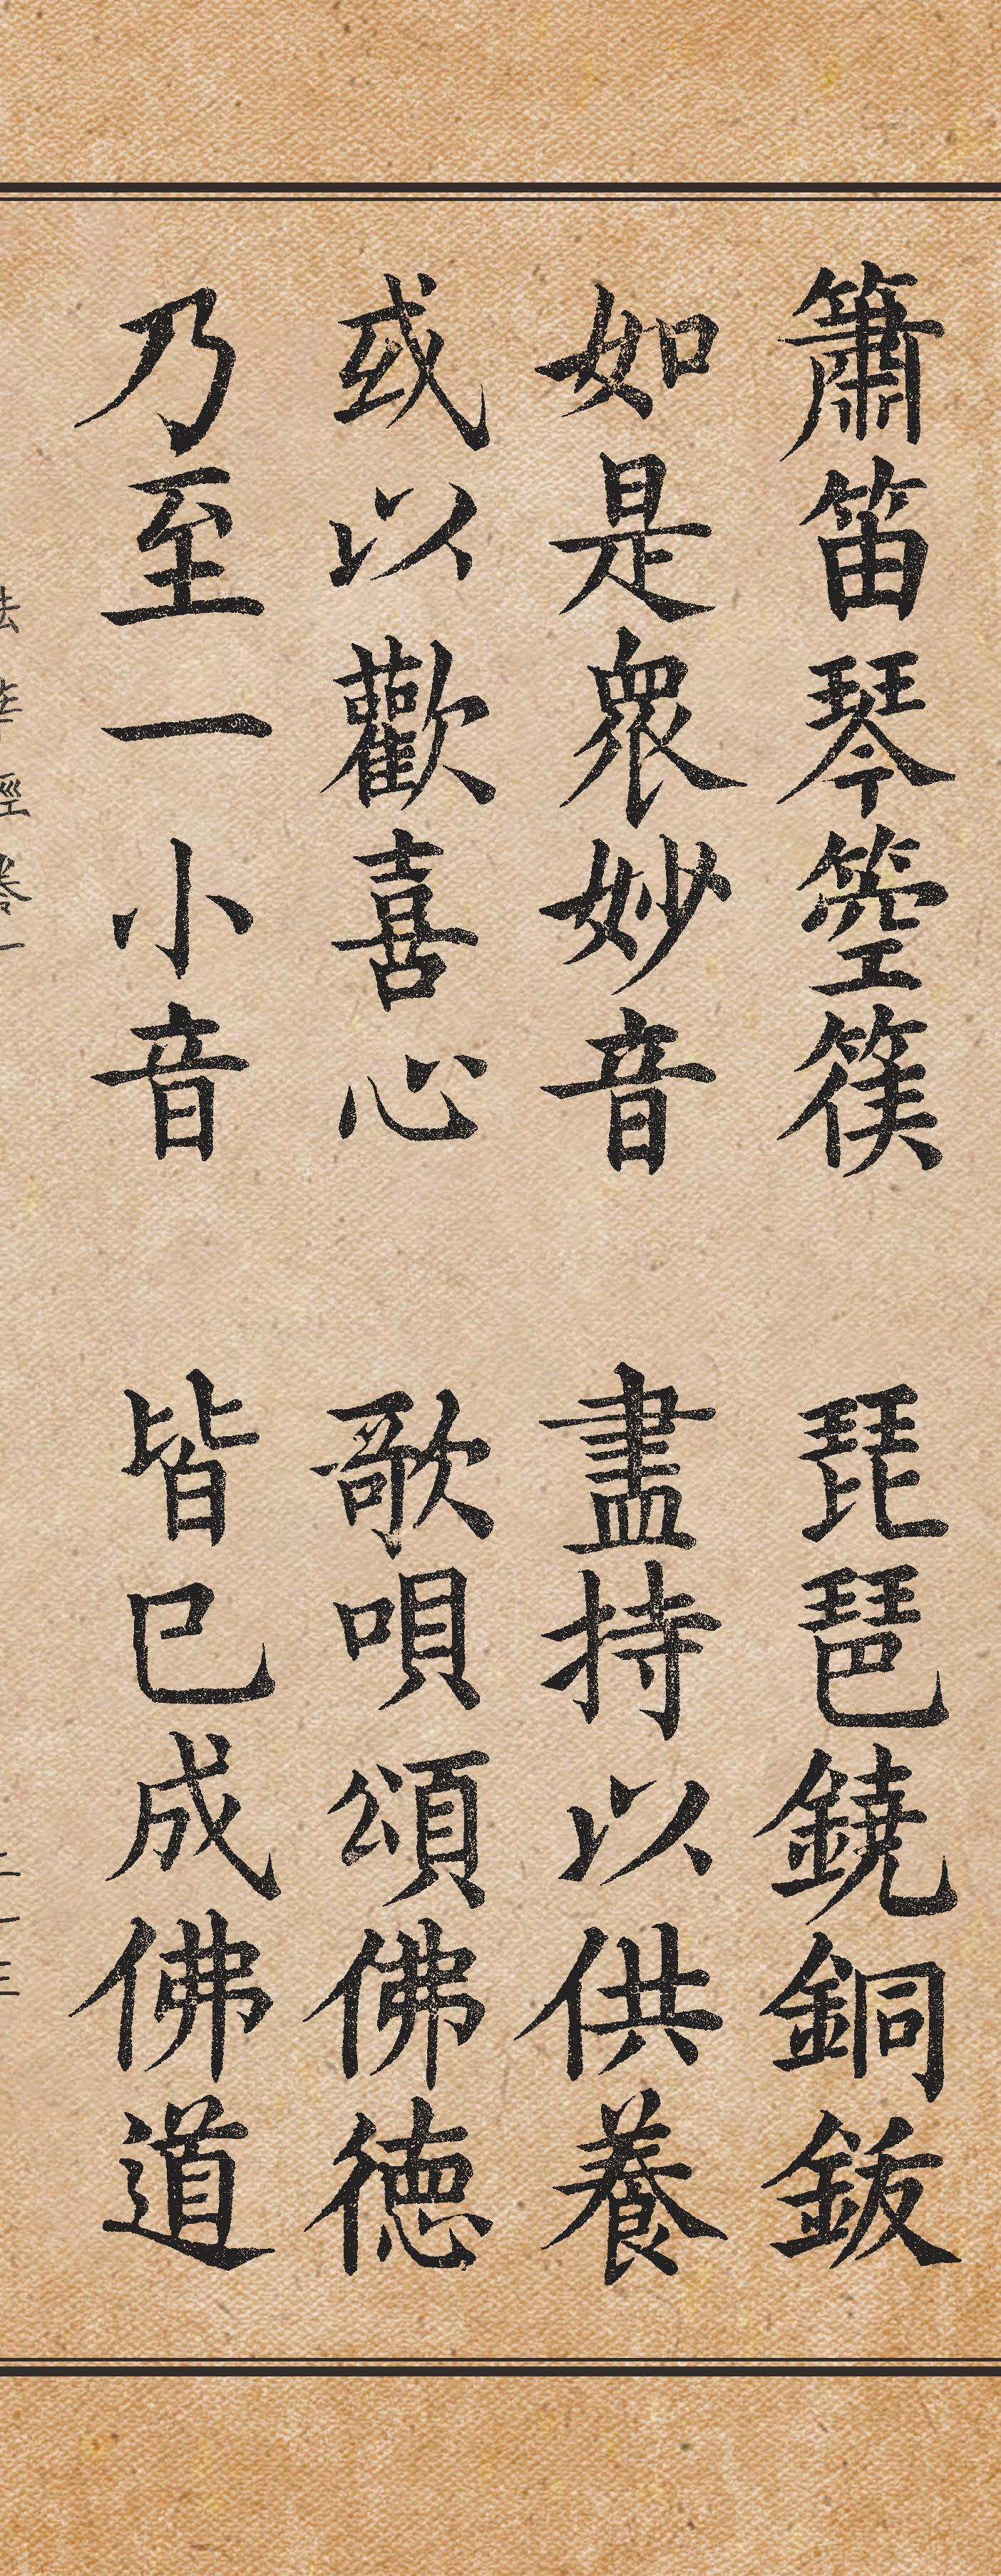 簫笛琴箜篌　琵琶鐃銅鈸
如是衆妙音　盡持以供養
或以歡喜心　歌唄頌佛德
乃至一小音　皆已成佛道
法華經卷一　二一三